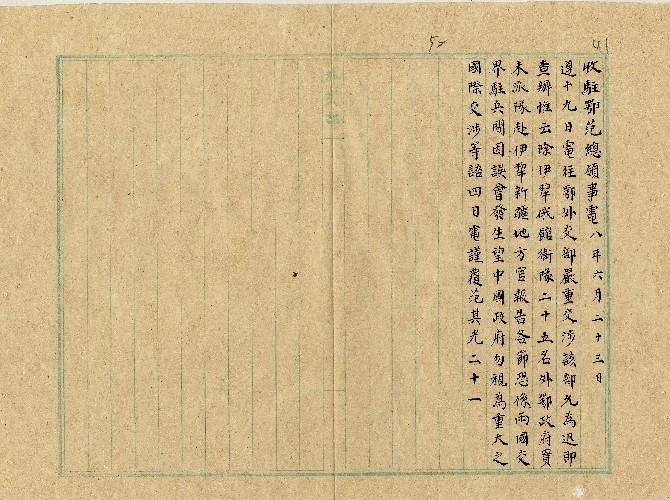 41
52
收駐鄂范總領事電八年六月二十三日
遵十九日電往鄂外交部嚴重交涉該部允為迅即
查辦惟云除伊犂俄館衛隊二十五名外鄂政府實
未派隊赴伊犂新疆地方官報告各節恐係兩國交
界駐兵間因誤會發生望中國政府勿視為重大之
國際交涉等語四日電謹覆范其光二十一